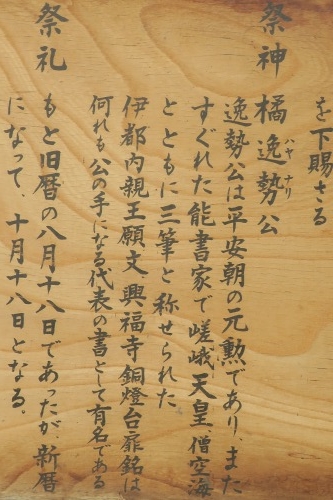 を下賜さる
祭神 橘逸勢公
ハヤ ナリ
逸勢公は平安朝の元勲であり、また
すぐれた能書家で嵯峨天皇僧空海
とともに三筆と称せられた
伊都内親王願文興福寺銅燈台扉銘は
何れも公の手になる代表の書として有名である
祭礼 もと旧暦の八月十八日であったが、新暦
になって、十月十八日となる。